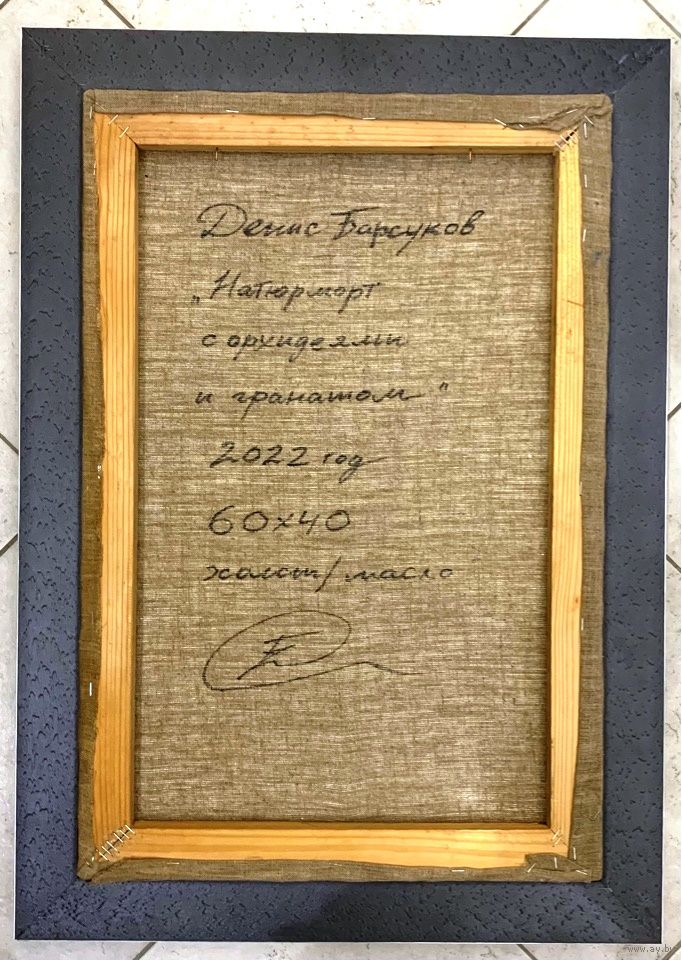 Денис Барсуков
„Натюрморт
с орхидеями
и гранатом"
2022 год
60х40
холст/масло
www.ay.by